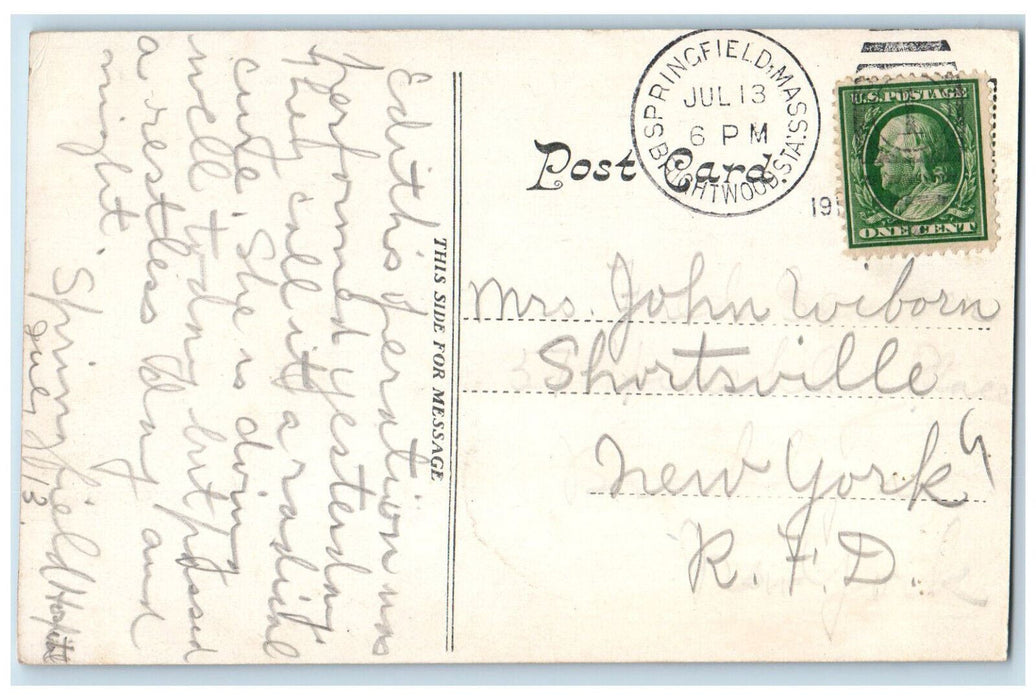 Edith's operation was
performed yesterday
they call it a radical
cure. She is doing
well today but passed
a restless day and
night.
Springfield Hospital
July 13.
THIS SIDE FOR MESSAGE
Post Card.
SPRINGFIELD, MASS.
JUL 13
6 PM
BRIGHTWOOD STA.
19
U.S. POSTAGE
ONE CENT
Mrs. John Wiborn
Shortsville
New York
R. F. D.